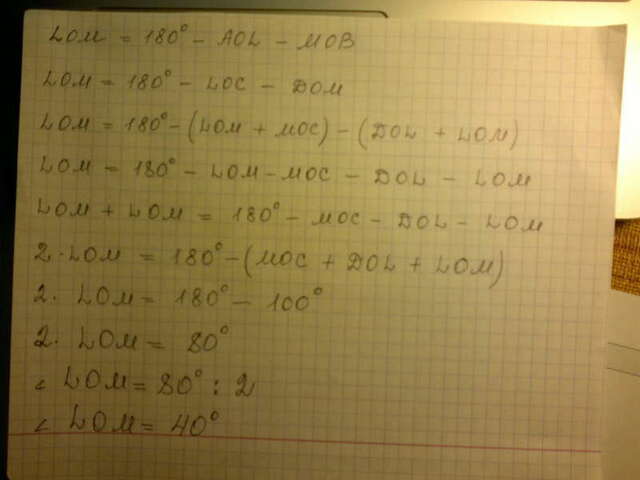 LOM = 180° - AOL - MOB
LOM = 180° - LOC - DOM
LOM = 180° - (LOM + MOC) - (DOL + LOM)
LOM = 180° - LOM - MOC - DOL - LOM
LOM + LOM = 180° - MOC - DOL - LOM
2 · LOM = 180° - (MOC + DOL + LOM)
2 · LOM = 180° - 100°
2 · LOM = 80°
∠ LOM = 80° : 2
∠ LOM = 40°